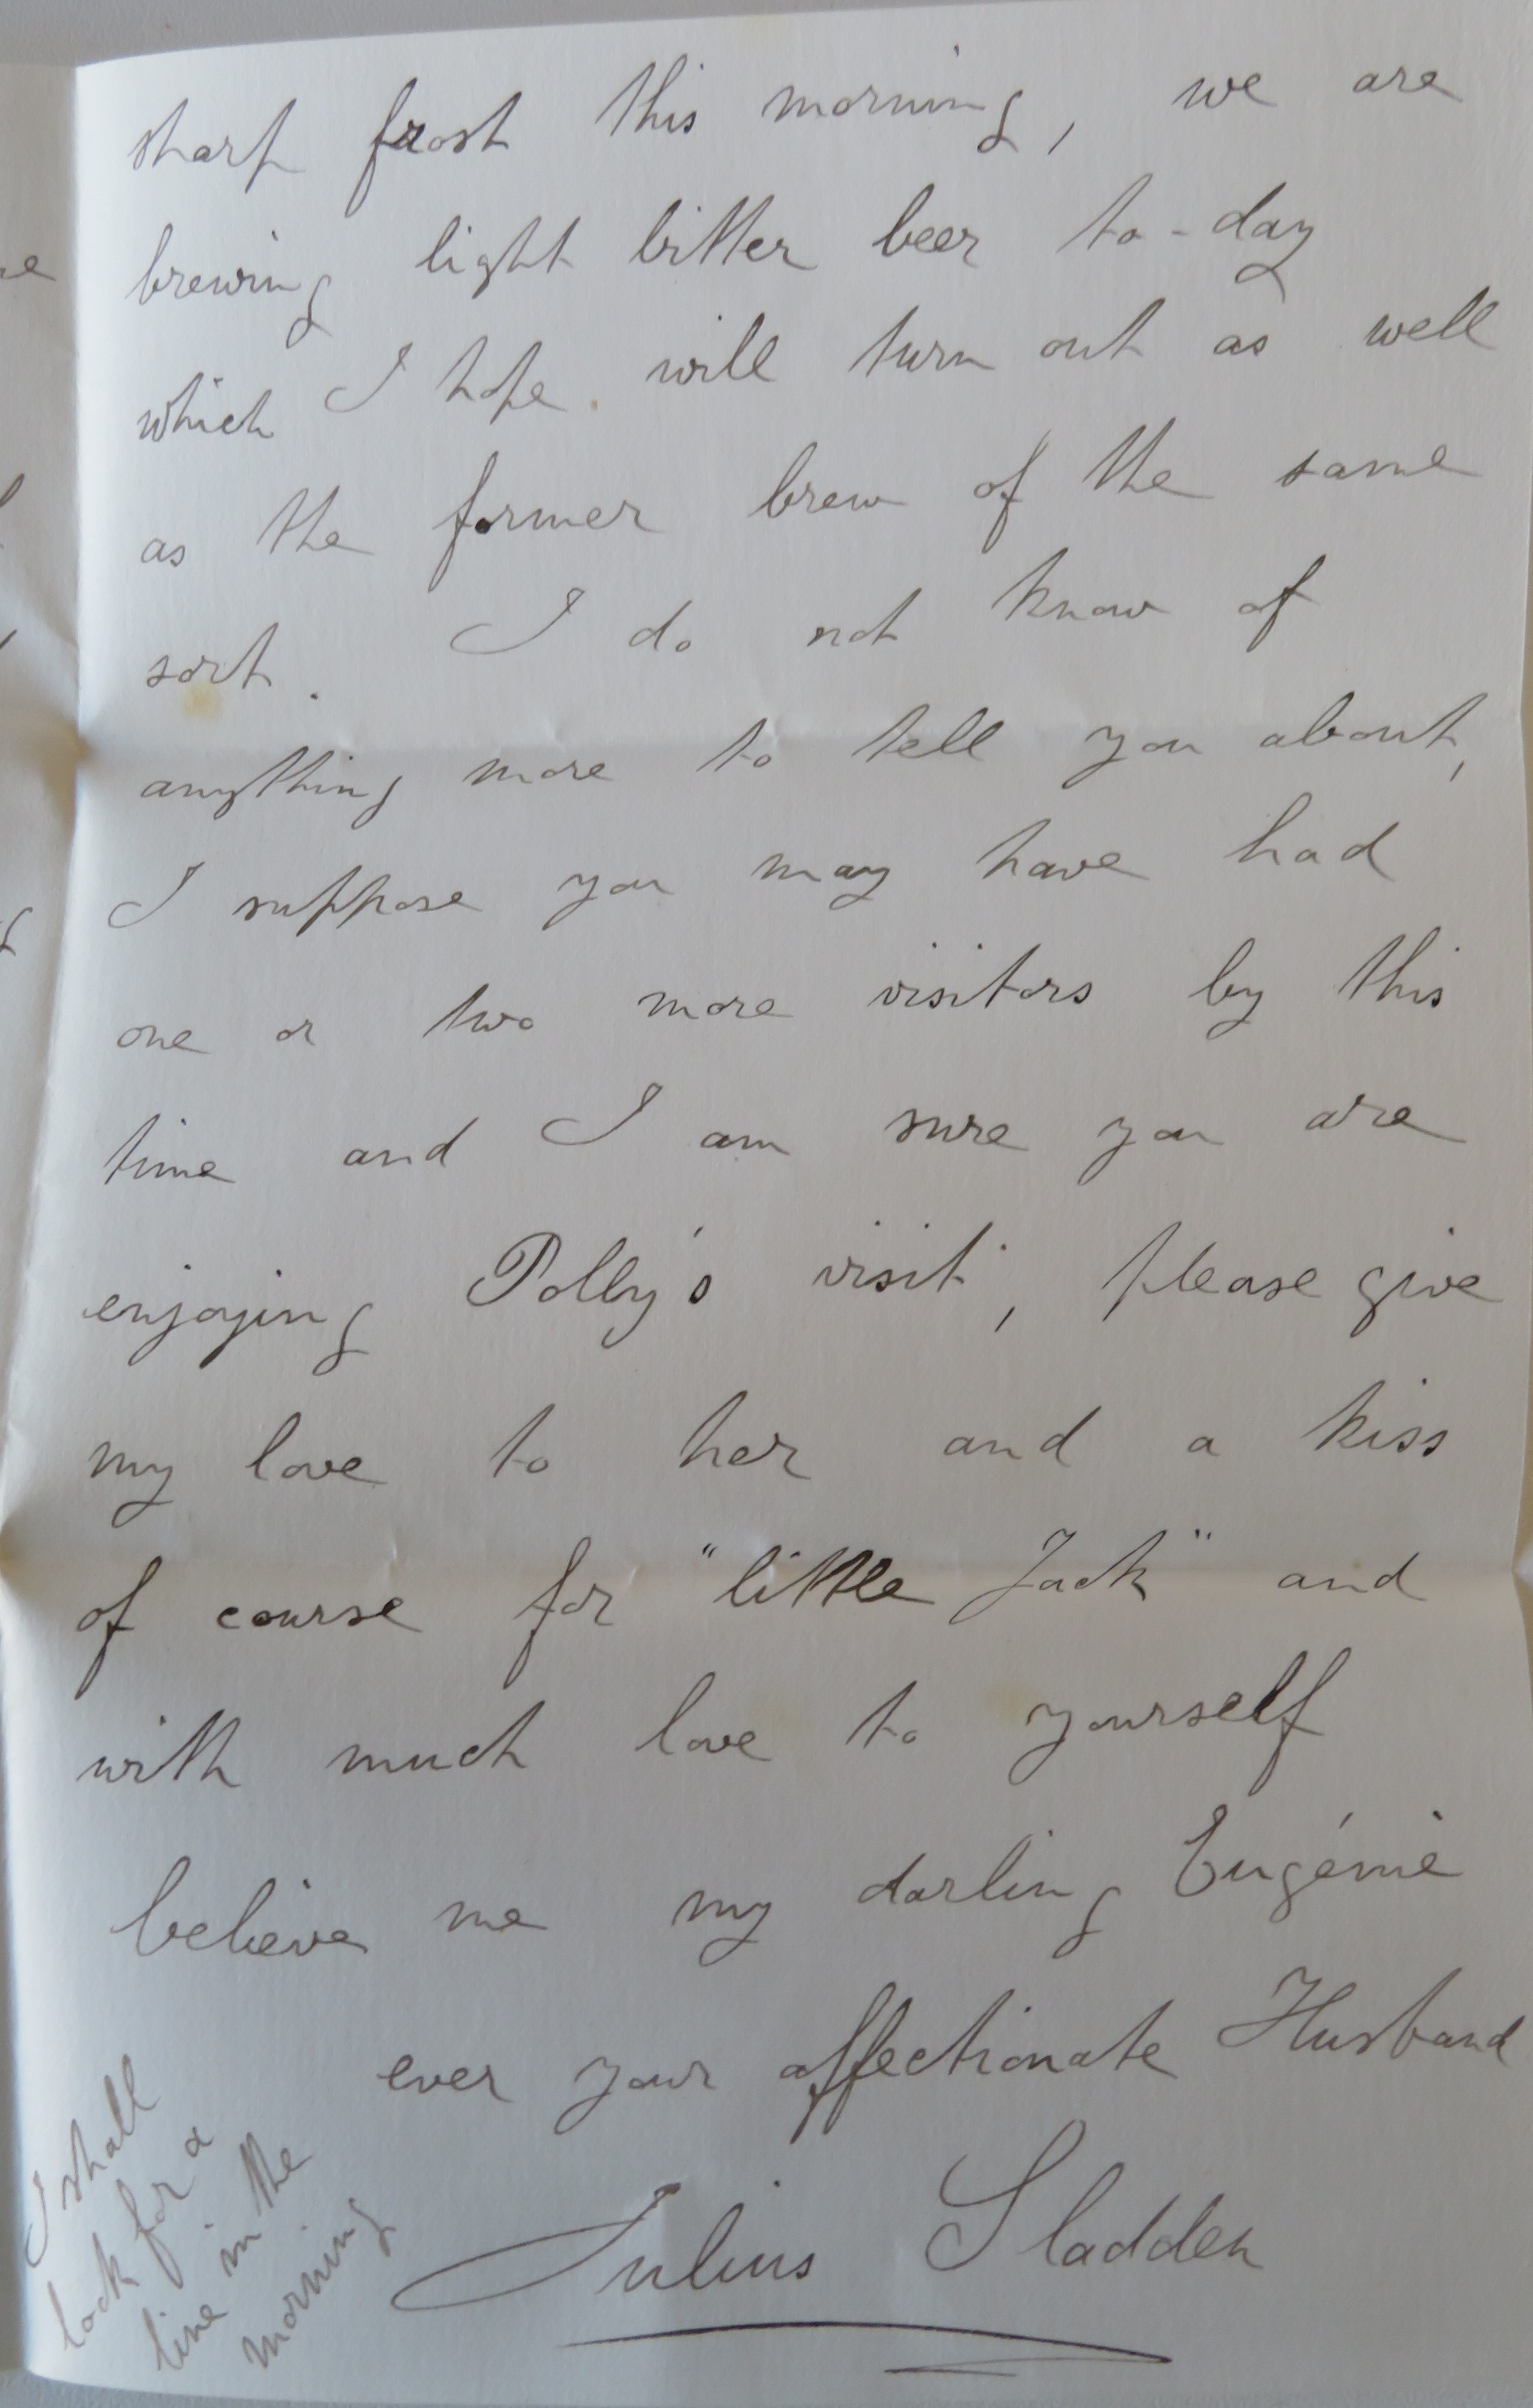 sharp frost this morning, we are
brewing light bitter beer to-day
which I hope will turn out as well
as the former brew of the same
sort. I do not know of
anything more to tell you about,
I suppose you may have had
one or two more visitors by this
time and I am sure you are
enjoying Polly's visit, please give
my love to her and a kiss
of course for "little Jack" and
with much love to yourself
believe me my darling Eugénie
ever your affectionate Husband
Julius Sladden
I shall
look for a
line in the
morning